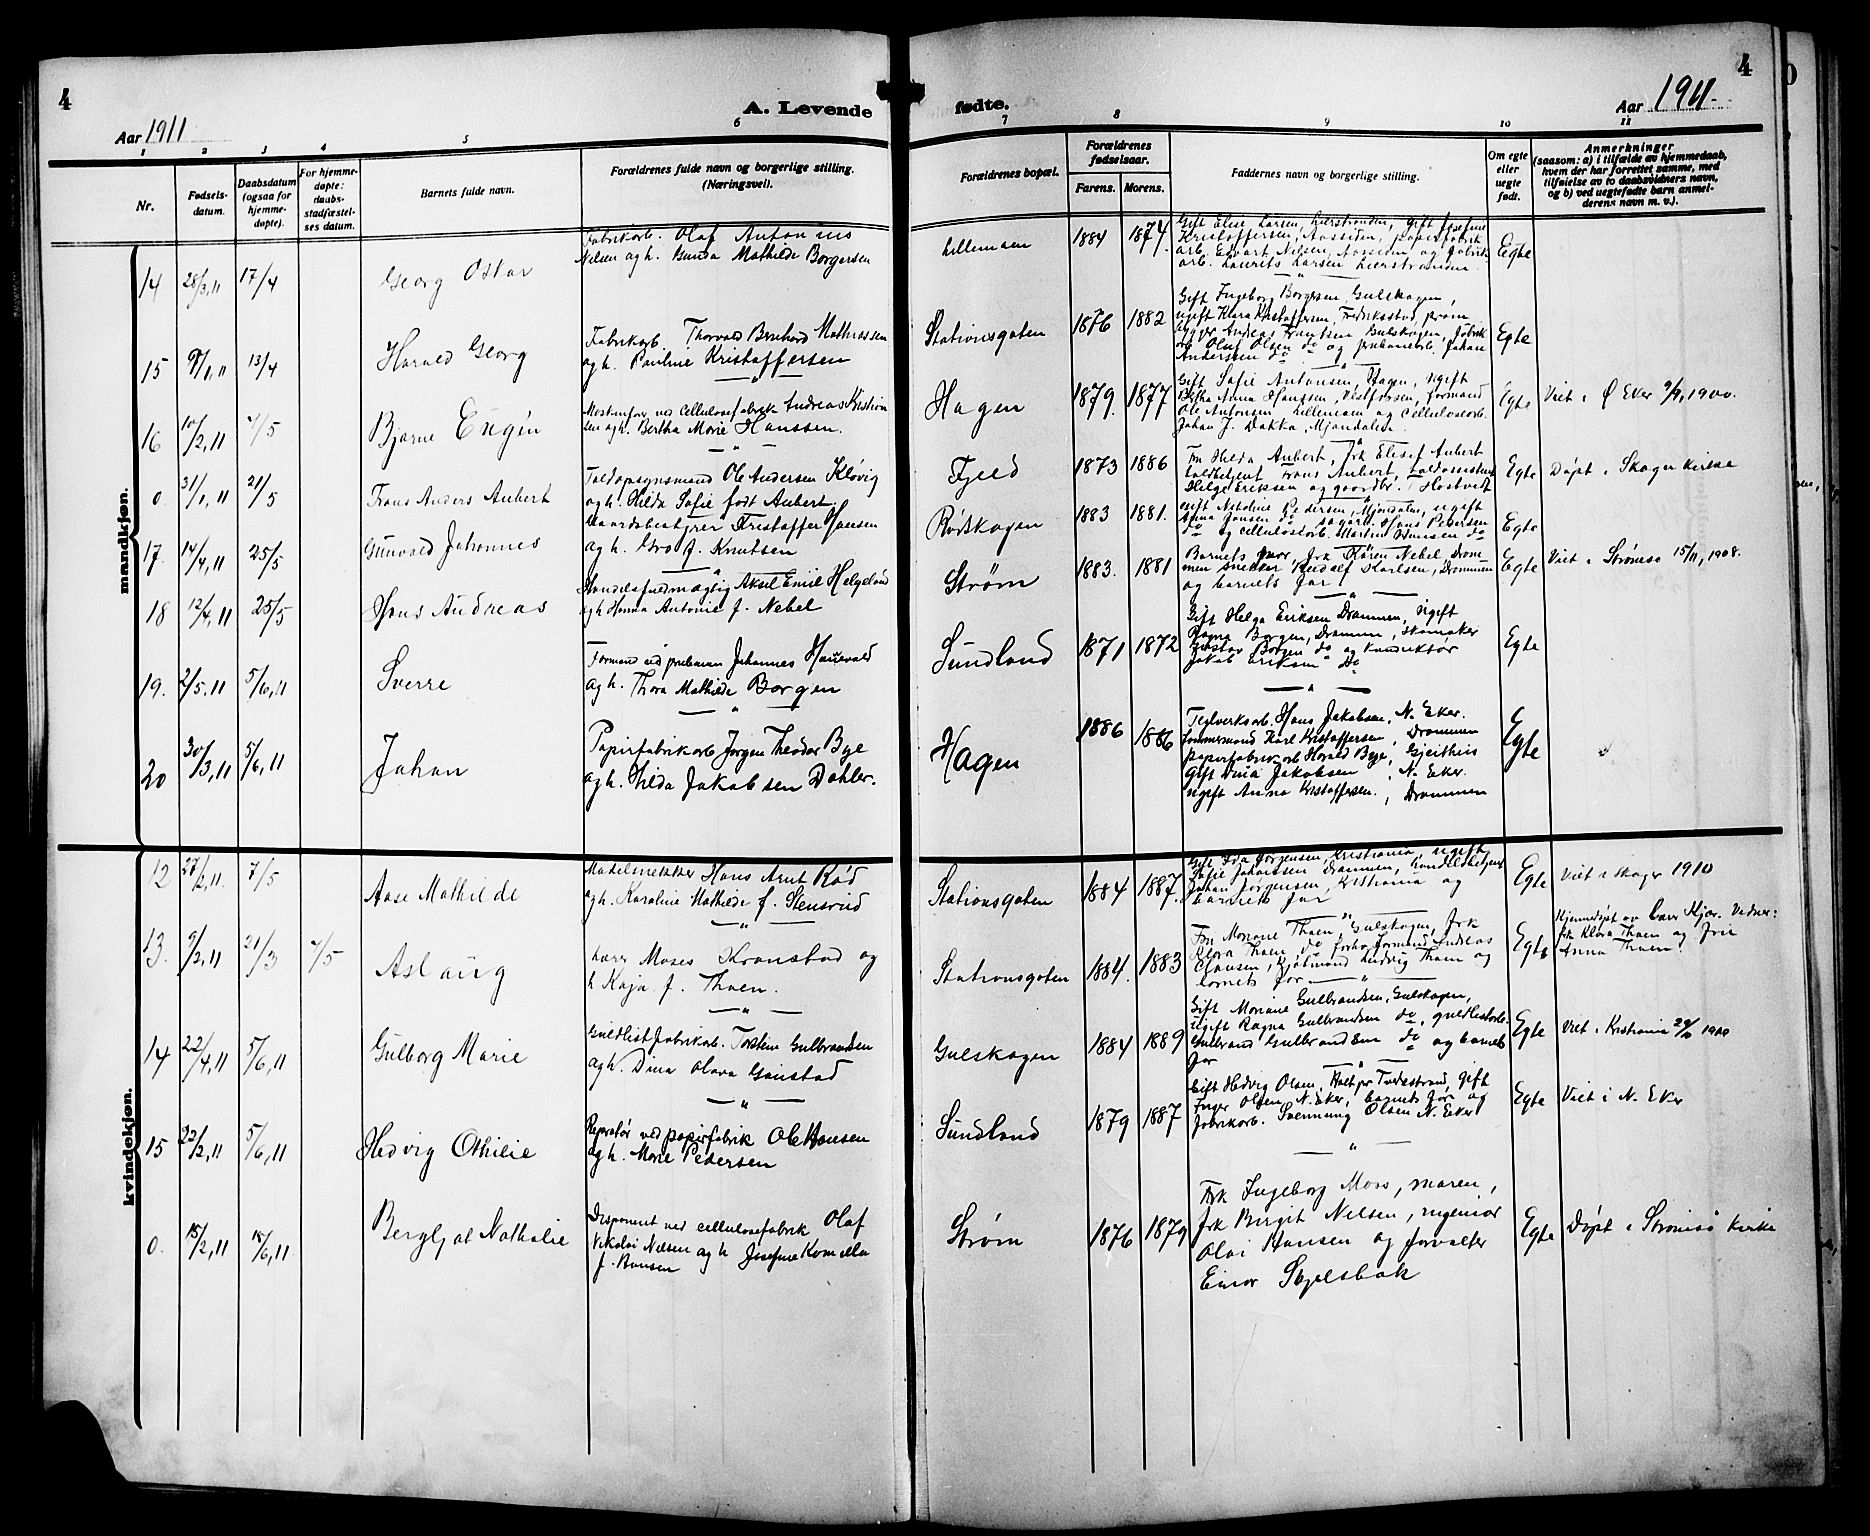 4
Aar 1911
A. Levende
fødte.
Aar 1911.
4
1 2 3 4 5 6 7 8 9 10 11
Nr.
Fødsels-
datum.
Daabsdatum
(ogsaa for
hjemme-
døpte).
For hjemme-
døpte:
daabs-
stadfæstel-
ses datum.
Barnets fulde navn.
Forældrenes fulde navn og borgerlige stilling.
(Næringsvei).
Forældrenes bopæl.
Forældrenes
fødselsaar.
Farens. Morens.
Faddernes navn og borgerlige stilling.
Om egte
eller
uegte
født.
Anmerkninger
(saasom: a) i tilfælde av hjemmedaab,
hvem der har forrettet samme, med
tilføielse av to daabsvidners navn,
og b) ved uegtefødte barn anmel-
derens navn m. v.).
mandkjøn.
14 28/3, 11 17/4 Georg Oskar
Fabrikarb. Olaf Antonius
Nilsen og h. Gunda Mathilde Borgersen
Lillemoen 1884 1874.
Gift Elise Larsen, Lierstranden, gift Josefine
Kristoffersen, Aassiden, papirfabrik
arb. Edvart Nilsen, Aassiden og fabrik
arb. Laurits Larsen Lierstranden.
Egte
15 9/1, 11 13/4 Harald Georg
Fabrikarb. Thorvald Bernhard Mathiassen
og h. Pauline Kristoffersen
Stationsgaten 1876 1882
Gift Ingeborg Borgersen, Gulskogen,
ugift Klara Kristoffersen, Fredriksstad, pram
Andreas Frantsen Gulskogen, fabrik
arb Olaf Olsen do og Johan
Anderssen do
Egte
16 10/2, 11 7/5 Bjarne Eugin
ved Cellulosefabrik Andreas Kristian
sen og h. Bertha Marie Hanssen.
Hagen 1879. 1877
Gift Sofie Antonsen, Hagen, ugift
Anna Hanssen, Vestfossen, formand
Ole Antonsen Lillemoen og cellulosearb.
Johan J. Dakka, Mjøndalen.
Egte
Viet i Ø Eker 9/9, 1900.
0 31/1, 11 21/5 Frans Anders Aubert
Toldopsynsmand Ole Andersen Kløvig
og h. Hilda Sofie født Aubert.
Fjeld 1873 1886
Fru Hilda Aubert, frk Elisef Aubert
toldbetjent Frans Aubert, toldassistent
Helge Eriksen og gaardbr. T Hostvedt
Egte
Døpt i Skoger kirke
17. 14/4, 11 25/5 Gunvald Johannes
Gaardsbestyrer Kristoffer Hansen
og h. Gro f. Knutsen
Rødskogen 1883 1881.
ugift Nataline Pedersen, Mjøndalen, ugift
Anna Jonsen do Hans Pedersen
do og cellulosearb. Martin Hansen do
Egte
18 12/4, 11 25/5 Hans Andreas
Handelsfuldmægtig Aksel Emil Helgeland
og h Hanna Antonie f. Nebel
Strøm 1883. 1881
Barnets mor, frk Karen Nebel, Dram-
men snekker Rudolf Karlsen, Drammen
og barnets far
Egte
Viet i Strømsø 15/11, 1908.
19. 2/5, 11 5/6, 11 Sverre
Formand ved Johannes Hauevald
og h. Thora Mathilde Borgen
Sundland 1871 1872
Gift Helga Eriksen Drammen, ugift
Ragna Borgen, Drammen, skomaker
Gustav Borgen do og konduktør
Jakob Eriksen do
Egte
20 30/3, 11 5/6, 11 Johan
Papirfabrikarb Jørgen Theodor Bye
og h. Hilda Jakobsen Dahler.
Hagen 1886 1886
Teglverksarb. Hans Jakobsen, N. Eker.
tømmermand Karl Kristoffersen, Drammen
papirfabrikarb Harald Bye, Geithus
gift Dina Jakobsen, N. Eker.
ugift Anna Kristoffersen., Drammen
Egte
kvindekjøn.
12 27/2, 11. 7/5 Aase Mathilde
Modelsnekker Hans Arnt Rød
og h. Karoline Mathilde f. Stensrud
Stationsgaten 1884 1887.
Gift Ida Jørgensen, Kristiania, ugift
Sofie Johansen Drammen, handelsbetjent
Johan Jørgensen, Kristiania og
barnets far
Egte
Viet i Skoger 1910
13. 9/2, 11 21/3 7/5 Aslaug
Lærer Moses Kronstad og
h Kaja f. Thoen.
Stationsgaten 1884. 1883
Fru Mariane Thoen, Gulskogen, frk
Klara Thoen, do, forhv. formand Andreas
Clausen, kjøbmand Ludvig Thoen og
barnets far
Egte
Hjemmedøpt av Lærer Kjær. Vidner:
frk Klara Thoen og Fru
Anna Thoen.
14 22/4, 11 5/6, 11 Gulborg Marie
Guldlistfabrikarb. Torstein Gulbrandsen
og h. Dina Olava Gaustad
Gulskogen 1884 1889
Gift Mariane Gulbrandsen, Gulskogen,
ugift Ragna Gulbrandsen do, guldlistarb.
Gulbrand Gulbrandsen do og barnets
far
Egte
Viet i Kristiania 29/ 1909
15 22/2, 11 5/6, 11 Hedvig Othilie
Reparatør ved papirfabrik Ole Hansen
og h. Marie Pedersen
Sundland 1879 1887
Gift Hedvig Olsen, Holt pr Tvedestrand, gift
Inger Olsen N. Eker, barnets far og
fabrikarb. Svennung Olsen N. Eker
Egte
Viet i N. Eker
0. 15/2, 11 18/6, 11 Bergljot Nathalie
Disponent ved cellulosefabrik Olaf
Nikolai Nilsen og h Josefine Kamilla
f. Hansen
Strøm 1876 1879
Frk Ingeborg Moss, maren,
frk Birgit Nilsen, ingeniør
Olai Hansen og forvalter
Einar Skjelsbæk
Egte
Døpt i Strømsø kirke